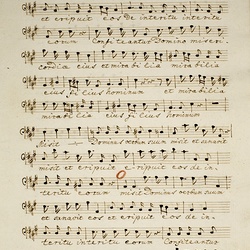 et eripuit eos de interitu interitu
eorum Confiteantur Domino miseri
cordia ejus et mirabilia mirabilia
ejus filius hominum et mirabilia
mirabilia ejus filius hominum
Misit Dominus verbum suum et sanavit
misit et eripuit eripuit eos de in-
teritu eorum misit Dominus verbum suum
et sanavit eos et eripuit eos de in-
teritu interitu eorum Confiteantur